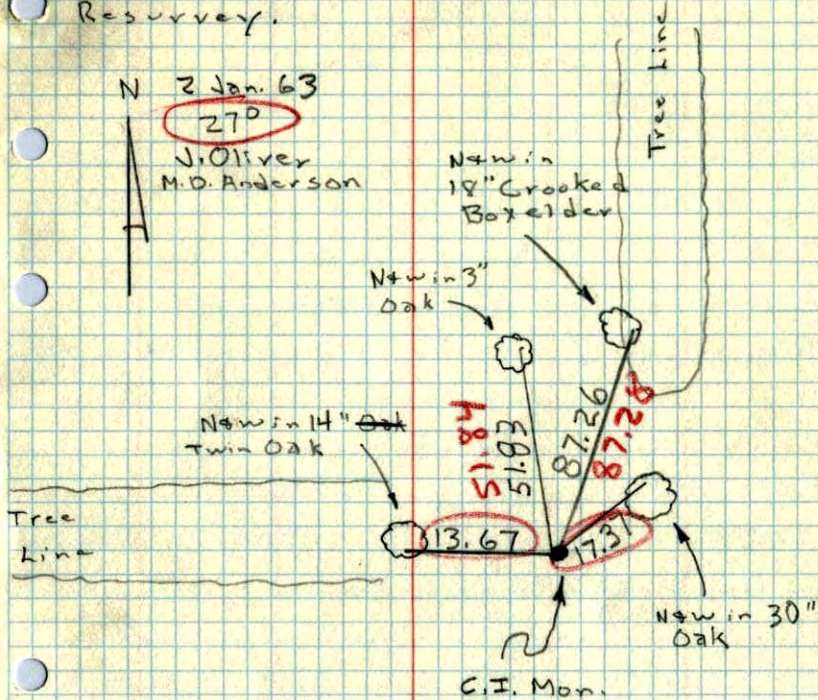 Resurvey.
N 2 Jan. 63
27°
J. Oliver
M.D. Anderson
Tree Line
N&W in
18" Crooked
Boxelder
N&W in 3"
Oak
N&W in 14" Oak
Twin Oak
51.84
51.83
87.26
87.28
Tree
Line
13.67
17.37
N&W in 30"
Oak
C.I. Mon.